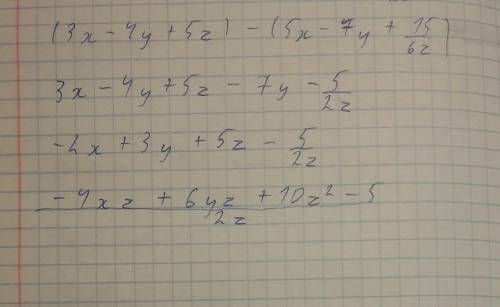 (3x - 4y + 5z) - (5x - 7y + 15/6z)
3x - 4y + 5z - 7y - 5/2z
-2x + 3y + 5z - 5/2z
(-4xz + 6yz + 10z² - 5)/2z